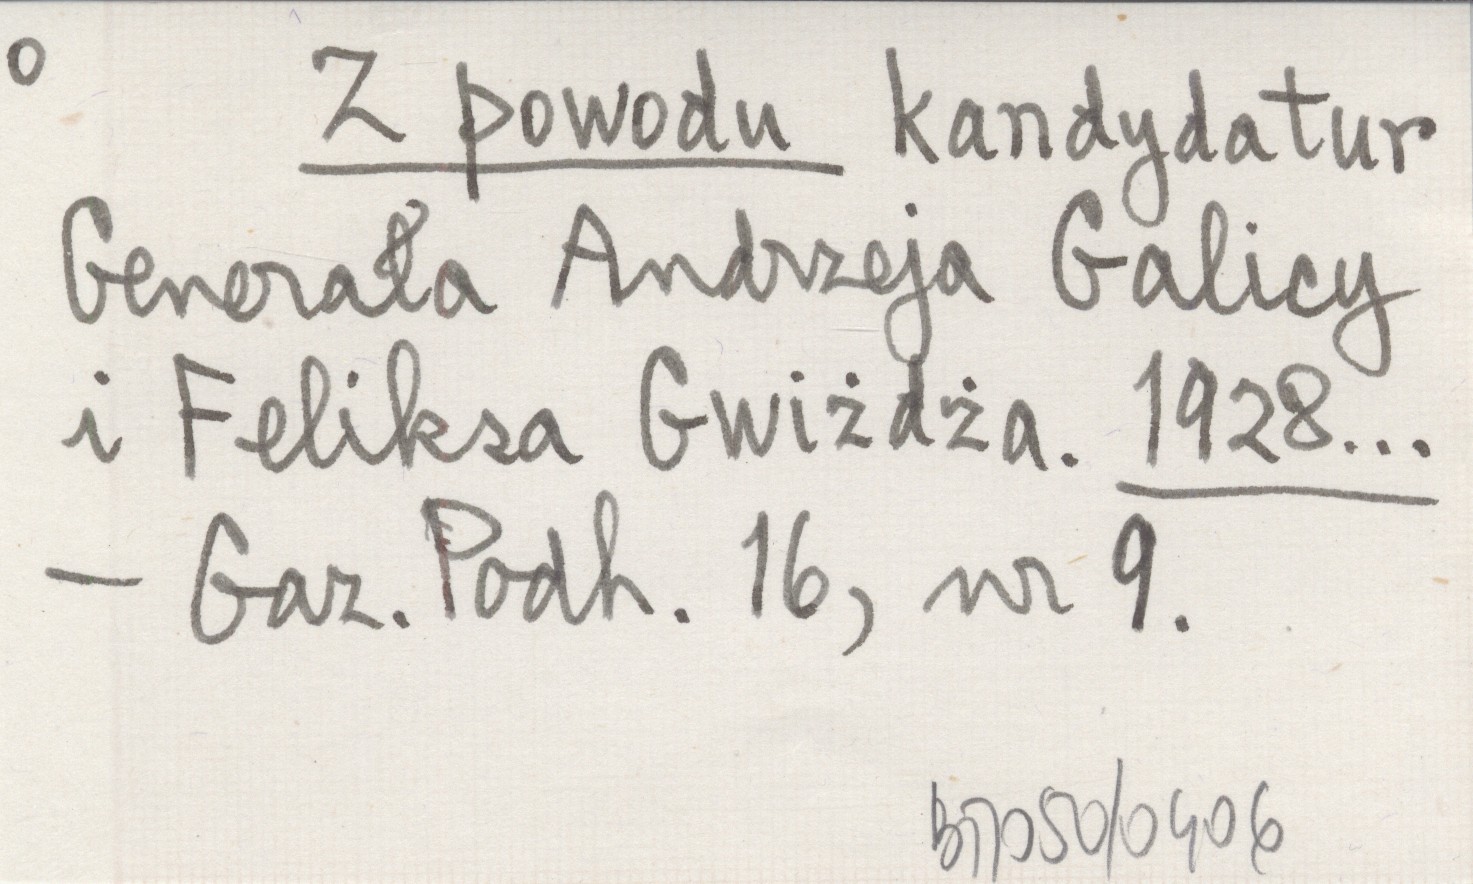 o Z powodu kandydatur
Generała Andrzeja Galicy
i Feliksa Gwiżdża. 1928...
— Gaz. Podh. 16, nr 9.